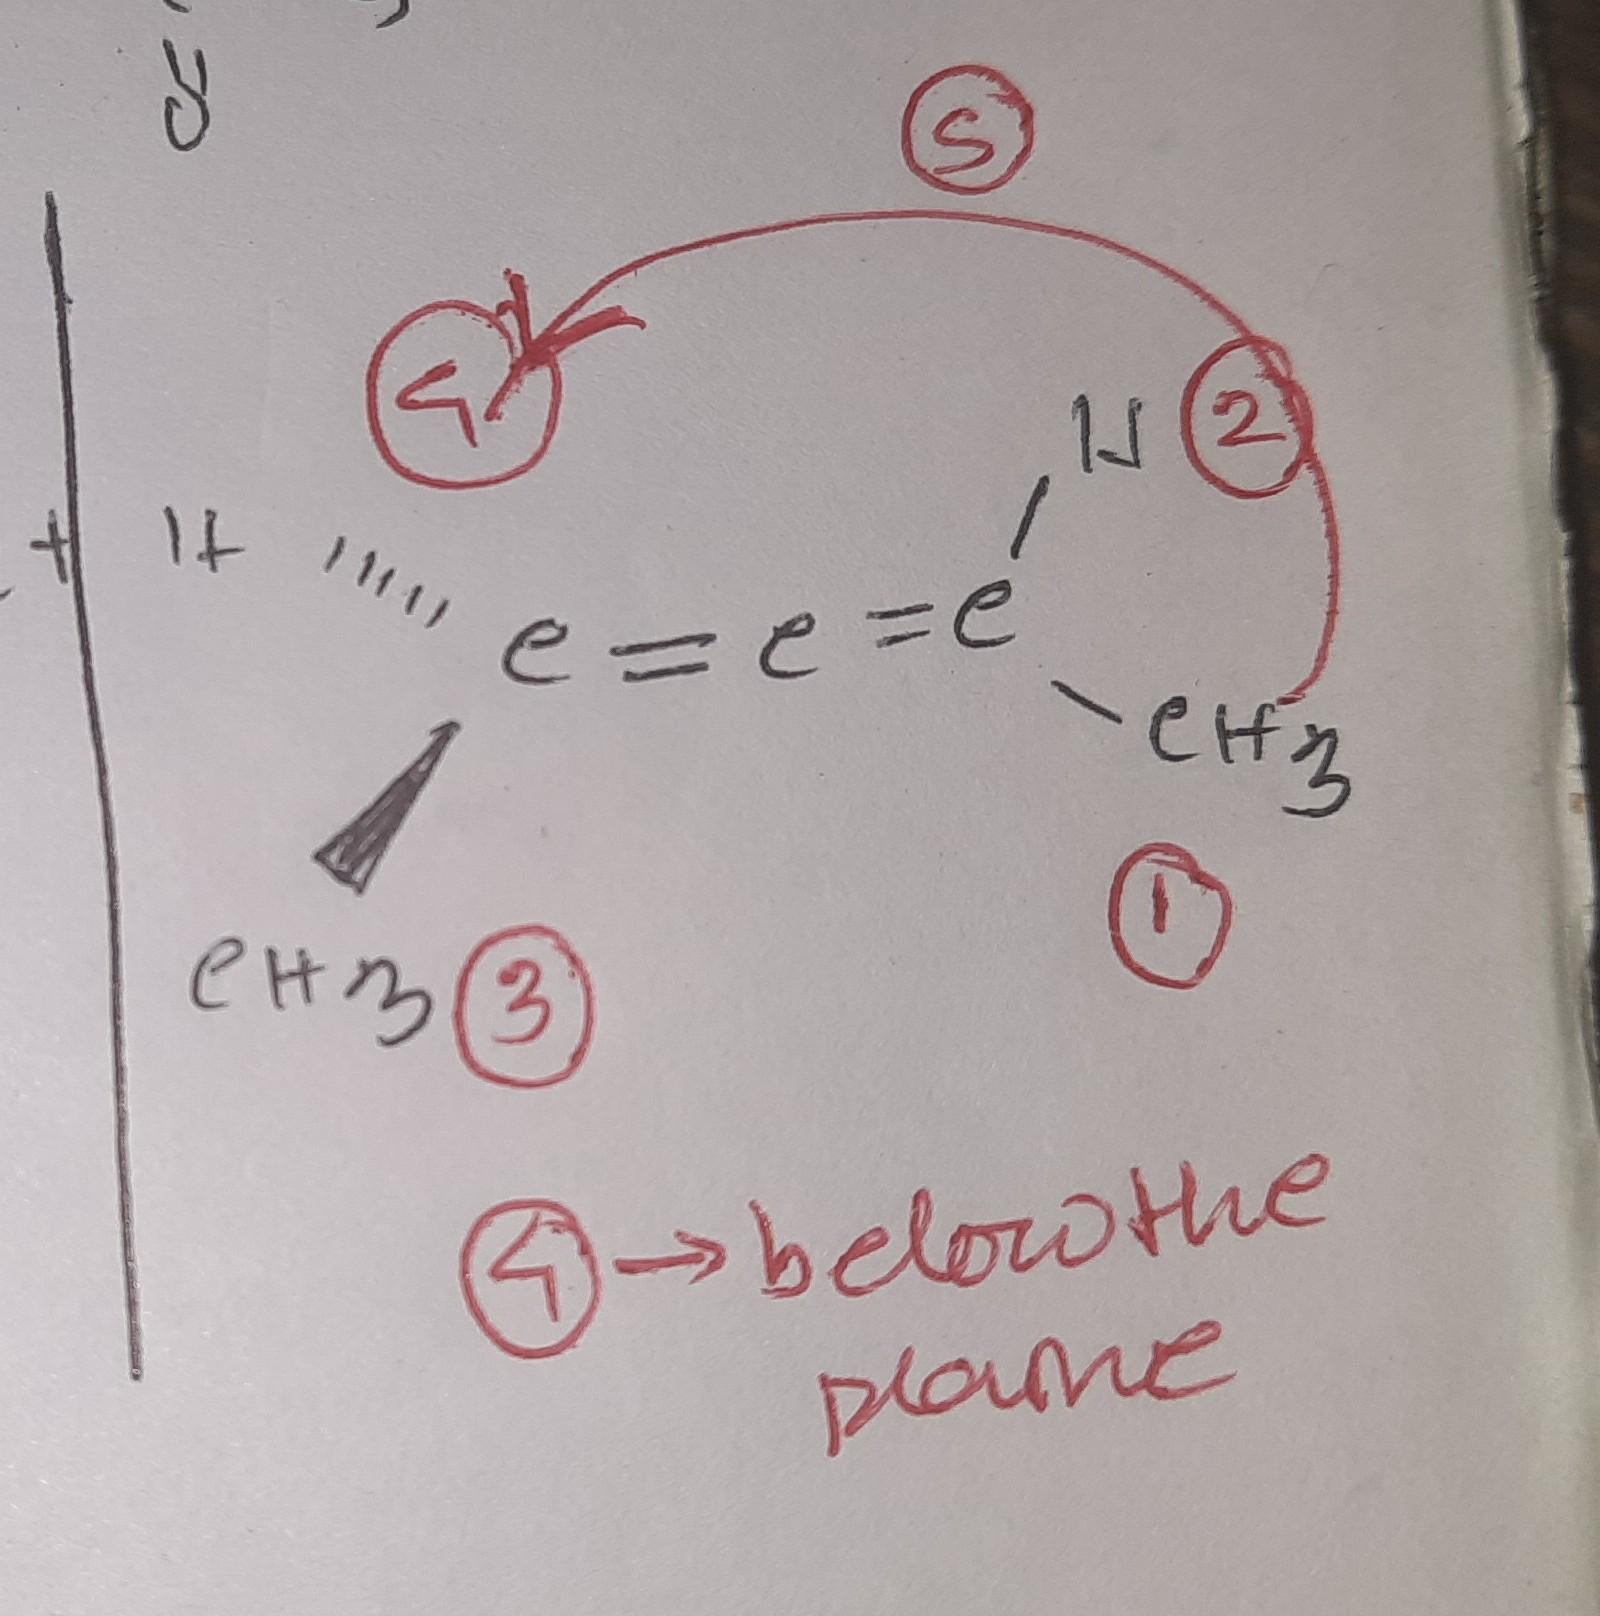 S
4
H 2
H
C = C = C
CH3
1
CH3 3
4 → below the
plane